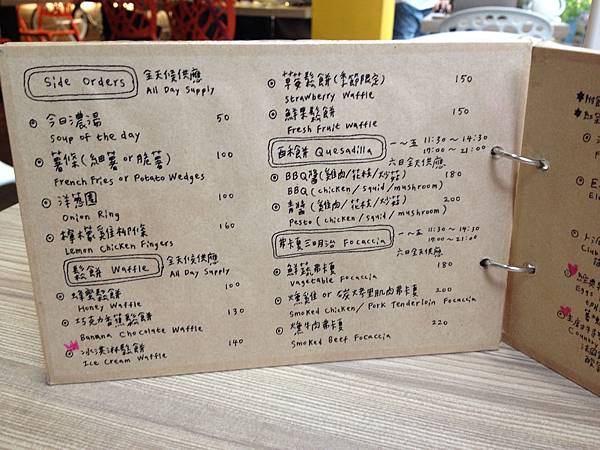 Side Orders 全天候供應
All Day Supply
今日濃湯 50
Soup of the day
薯條(細薯 or 脆薯) 100
French Fries or Potato Wedges
洋蔥圈 100
Onion Ring
檸檬雞柳條 160
Lemon Chicken Fingers
鬆餅 Waffle 全天候供應
All Day Supply
蜂蜜鬆餅 100
Honey Waffle
巧克力香蕉鬆餅 130
Banana Chocolate Waffle
冰淇淋鬆餅 140
Ice Cream Waffle
草莓鬆餅(季節限定) 150
Strawberry Waffle
鮮果鬆餅 150
Fresh Fruit Waffle
百木餅 Quesadilla 一～五 11:30～14:30
17:00～21:00
六日全天供應
BBQ醬(雞肉/花枝/炒菇) 180
BBQ (chicken/squid/mushroom)
青醬(雞肉/花枝/炒菇) 200
Pesto (chicken/squid/mushroom)
弗卡夏三明治 Focaccia 一～五 11:30～14:30
17:00～21:00
六日全天供應
鮮蔬弗卡夏 180
Vagetable Focaccia
燻雞 or 碳烤里肌肉弗卡夏 200
Smoked Chicken/Pork Tenderloin Focaccia
燻牛肉弗卡夏 220
Smoked Beef Focaccia